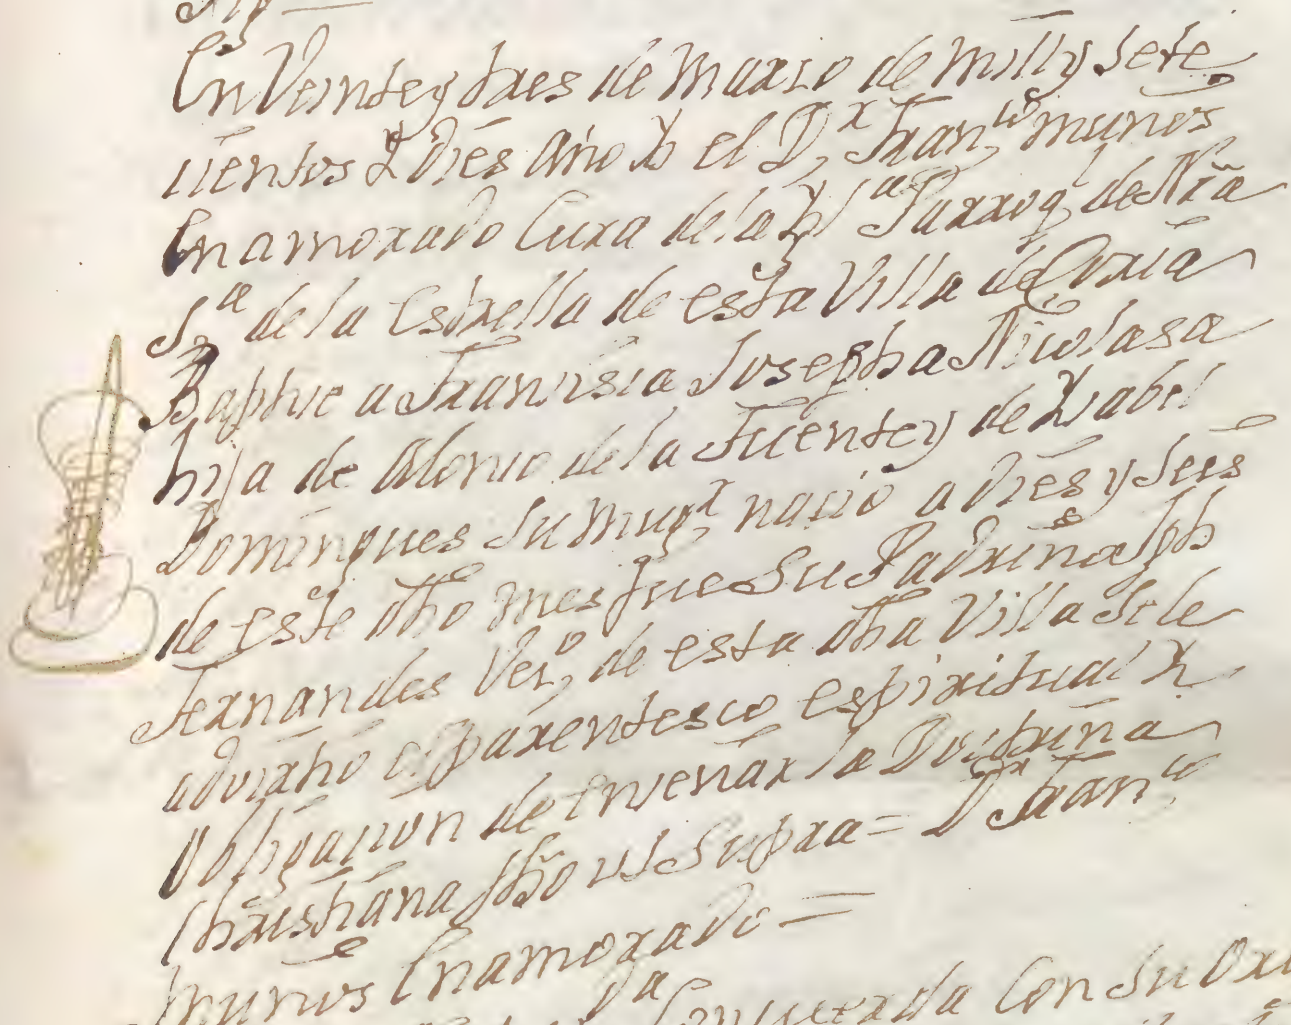 En Veinte y tres de marzo de mill y sete
cientos y dies año yo el D.r Fran.co muños
Enamorado Cura de la Ygl.a Parroq.l de Nrã
S.ra de la estrella de esta Villa de Coria
Baptise a Fransisca Josepha Nicolasa
hija de Alonso de la Fuente y de Ysabel
Domingues su mug.r nacio a dies y seis
de este dho mes fue su Padrino Jph
Fernandes Vez.o de esta dha Villa se le
advirtio el parentesco espiritual y
obligacion de enseñar la Doctrina
Christiana fho ut supra = D.r Fran.co
muños Enamorado =
Con su